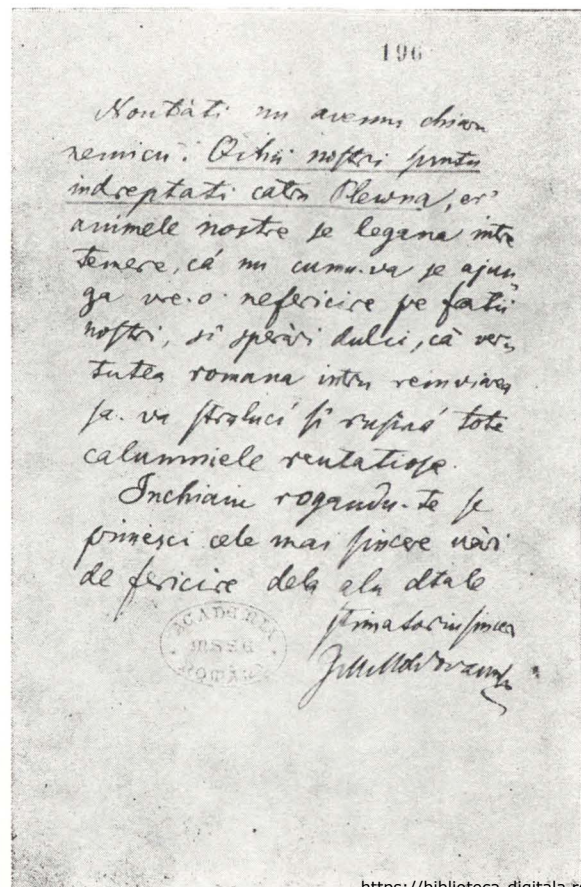 196
Noutăti nu avemu chiaru
nemicu. Ochii noștri suntu
indreptati catra Plewna, er'
animele nostre se legana intre
temere, că nu cumu-va se ajun
ga vre-o nefericire pe fatii
noștri, si sperări dulci, că ver
tutea romana intru reinvierea
sa va străluci si rusiná tote
calumniele reutatiose.
Inchiaiu rogandu-te se
primesci cele mai sincere urări
de fericire dela alu dtale
stimatoriu sincer
J M Moldovanu
ACADEMIA
MSSE
ROMÂNĂ
https://biblioteca-digitala.r